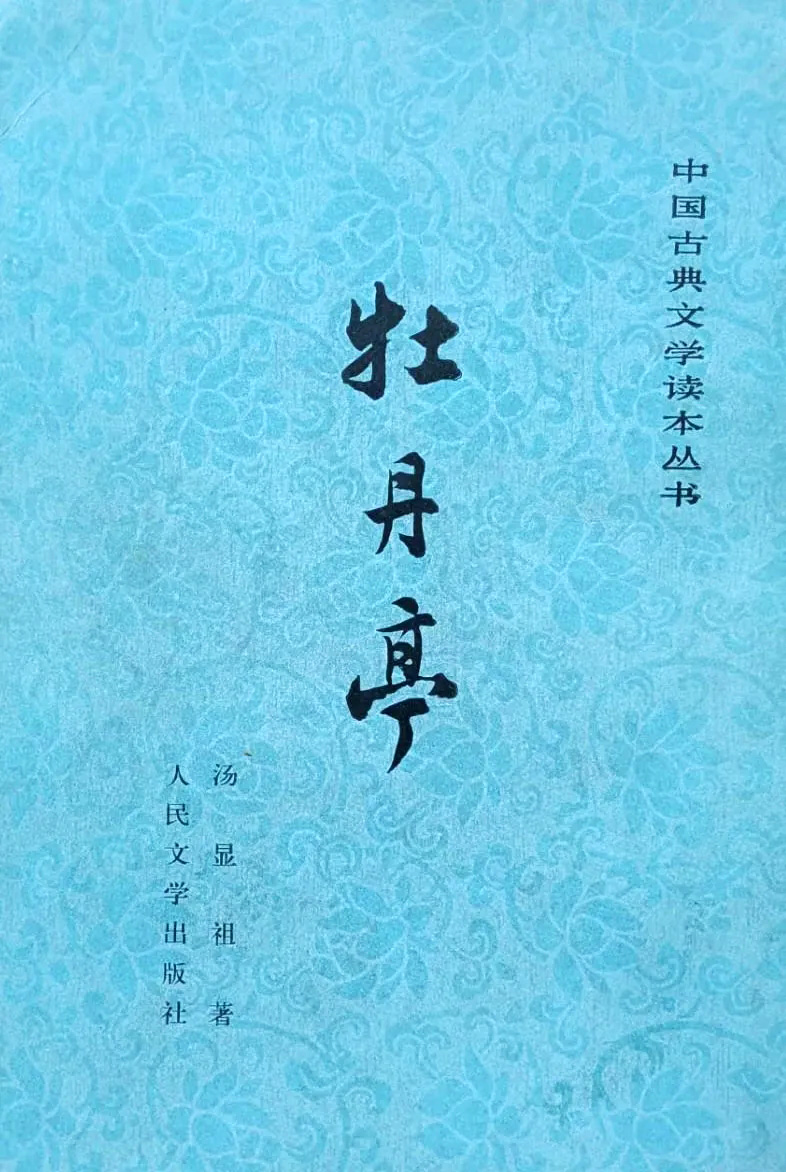 中国古典文学读本丛书
牡丹亭
汤显祖著
人民文学出版社